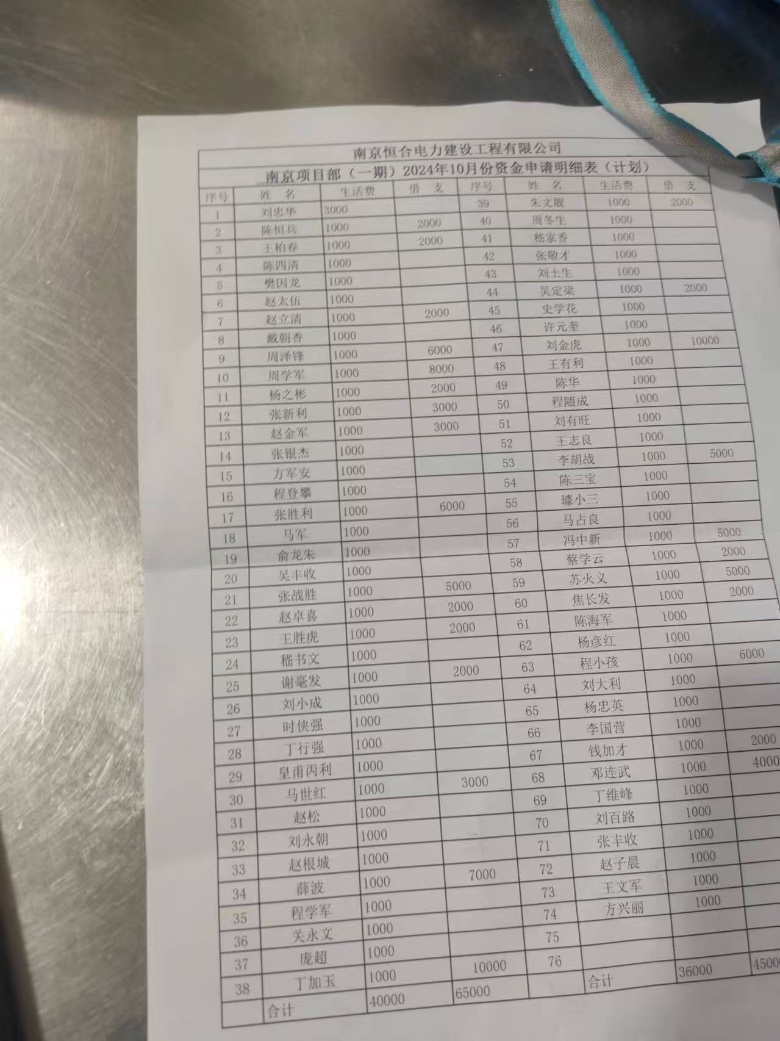 南京恒合电力建设工程有限公司
南京项目部（一期）2024年10月份资金申请明细表（计划）
序号 姓 名 生活费 借 支 序号 姓 名 生活费 借 支
1 刘忠华 3000 39 朱文靓 1000 2000
2 陈恒兵 1000 2000 40 周冬生 1000
3 王柏春 1000 2000 41 嵇家香 1000
4 陈四清 1000 42 张敬才 1000
5 樊因龙 1000 43 刘士生 1000
6 赵太伍 1000 44 吴定梁 1000 2000
7 赵立清 1000 2000 45 史学花 1000
8 戴朝香 1000 46 许元奎 1000
9 周泽锋 1000 6000 47 刘金虎 1000 10000
10 周学军 1000 8000 48 王有利 1000
11 杨之彬 1000 2000 49 陈华 1000
12 张新利 1000 3000 50 程随成 1000
13 赵金军 1000 3000 51 刘有旺 1000
14 张银杰 1000 52 王志良 1000
15 方军安 1000 53 李胡战 1000 5000
16 程登攀 1000 54 陈三宝 1000
17 张胜利 1000 6000 55 璩小三 1000
18 马军 1000 56 马占良 1000
19 俞龙朱 1000 57 冯中新 1000 5000
20 吴丰收 1000 58 蔡学云 1000 2000
21 张战胜 1000 5000 59 苏火义 1000 5000
22 赵卓喜 1000 2000 60 焦长发 1000 2000
23 王胜虎 1000 2000 61 陈海军 1000
24 嵇书文 1000 62 杨彦红 1000
25 谢毫发 1000 2000 63 程小孩 1000 6000
26 刘小成 1000 64 刘大利 1000
27 时侠强 1000 65 杨忠英 1000
28 丁行强 1000 66 李国营 1000
29 皇甫丙利 1000 67 钱加才 1000 2000
30 马世红 1000 3000 68 邓连武 1000 4000
31 赵松 1000 69 丁维峰 1000
32 刘永朝 1000 70 刘百路 1000
33 赵根城 1000 71 张丰收 1000
34 薛波 1000 7000 72 赵子晨 1000
35 程学军 1000 73 王文军 1000
36 关永文 1000 74 方兴丽 1000
37 庞超 1000 75
38 丁加玉 1000 10000 76
合计 40000 65000 合计 36000 45000